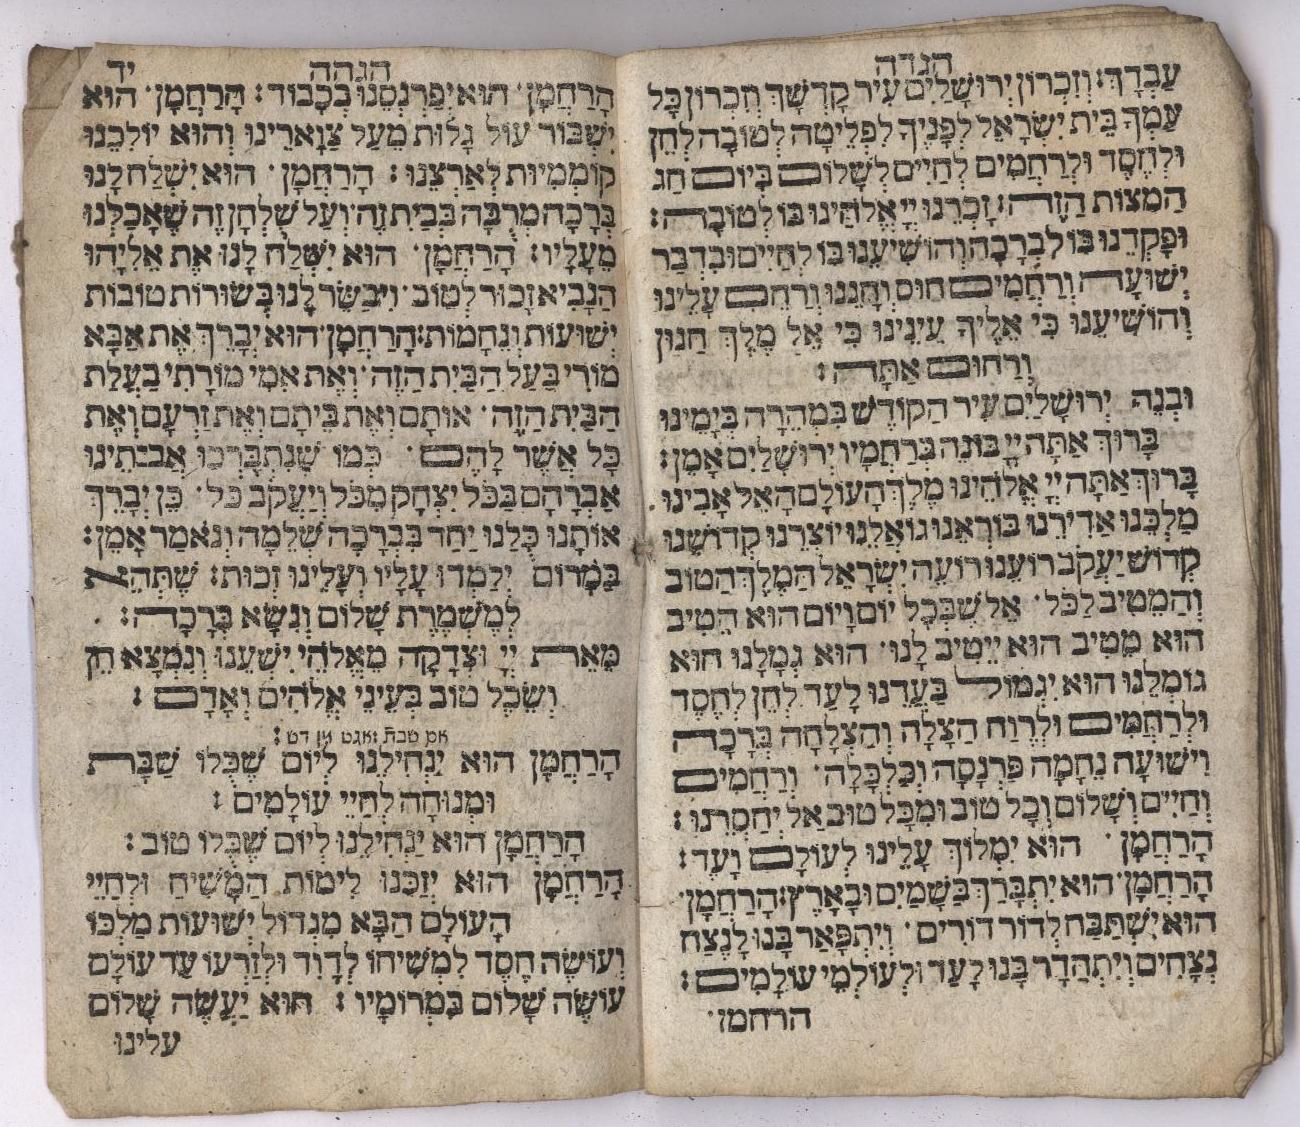 הגדה
עַבְדָּךְ׃ וְזִכְרוֹן יְרוּשָׁלַיִם עִיר קָדְשָׁךְ וְזִכְרוֹן כָּל
עַמְּךָ בֵּית יִשְׂרָאֵל לְפָנֶיךָ לִפְלֵיטָה לְטוֹבָה לְחֵן
וּלְחֶסֶד וּלְרַחֲמִים לְחַיִּים לְשָׁלוֹם בְּיוֹם חַג
הַמַצוֹת הַזֶּה׃ זָכְרֵנוּ יְיָ אֱלֹהֵינוּ בּוֹ לְטוֹבָה׃
וּפָקְדֵנוּ בּוֹ לִבְרָכָה וְהוֹשִׁיעֵנוּ בּוֹ לְחַיִּים וּבִדְבַר
יְשׁוּעָה וְרַחֲמִים חוּס וְחָנֵּנוּ וְרַחֵם עָלֵינוּ
וְהוֹשִׁיעֵנוּ כִּי אֵלֶיךָ עֵינֵינוּ כִּי אֵל מֶלֶךְ חַנּוּן
וְרַחוּם אַתָּה׃
וּבְנֵה יְרוּשָׁלַיִם עִיר הַקּוֹדֶשׁ בִּמְהֵרָה בְּיָמֵינוּ
בָּרוּךְ אַתָּה יְיָ בּוֹנֵה בְּרַחֲמָיו יְרוּשָׁלַיִם אָמֵן׃
בָּרוּךְ אַתָּה יְיָ אֱלֹהֵינוּ מֶלֶךְ הָעוֹלָם הָאֵל אָבִינוּ
מַלְכֵּנוּ אַדִירֵנוּ בּוֹרְאֵנוּ גוֹאֲלֵנוּ יוֹצְרֵנוּ קְדוֹשֵׁנוּ
קְדוֹשׁ יַעֲקֹב רוֹעֵנוּ רוֹעֵה יִשְׂרָאֵל הַמֶּלֶךְ הַטּוֹב
וְהַמֵּטִיב לַכֹּל׳ אֵל שֶׁבְּכָל יוֹם וָיוֹם הוּא הֵטִיב
הוּא מֵטִיב הוּא יֵיטִיב לָנוּ׳ הוּא גְמָלָנוּ הוּא
גוֹמְלֵנוּ הוּא יִגְמוֹל בַּעֲדֵנוּ לָעַד לְחֵן לְחֶסֶד
וּלְרַחֲמִים וּלְרֶוַח הַצָּלָה וְהַצְלָחָה בְּרָכָה
וִישׁוּעָה נֶחָמָה פַּרְנָסָה וְכַלְכָּלָה׳ וְרַחֲמִים
וְחַיִּים וְשָׁלוֹם וְכָל טוֹב וּמִכָּל טוּב אַל יְחַסְּרֵנוּ׃
הָרַחֲמָן׳ הוּא יִמְלוֹךְ עָלֵינוּ לְעוֹלָם וָעֶד׃
הָרַחֲמָן׳ הוּא יִתְבָּרַךְ בַּשָּׁמַיִם וּבָאָרֶץ׃ הָרַחֲמָן׳
הוּא יִשְׁתַּבַּח לְדוֹר דּוֹרִים׳ וְיִתְפָּאַר בָּנוּ לָנֶצַח
נְצָחִים וְיִתְהַדָר בָּנוּ לָעַד וּלְעוֹלְמֵי עוֹלָמִים׃
הרחמן׳
הגהה יד
הָרַחֲמָן׳ הוּא יְפַרְנְסֵנוּ בְּכָבוֹד׃ הָרַחֲמָן׳ הוּא
יִשְׁבּוֹר עוֹל גָלוּת מֵעַל צַוָּארֵינוּ וְהוּא יוֹלִכֵנוּ
קוֹמְמִיּוּת לְאַרְצֵנוּ׃ הָרַחֲמָן׳ הוּא יִשְׁלַח לָנוּ
בְּרָכָה מְרֻבָּה בְּבַיִת זֶה׳ וְעַל שֻׁלְחָן זֶה שֶׁאָכַלְנוּ
מֵעָלָיו׃ הָרַחֲמָן׳ הוּא יִשְׁלַח לָנוּ אֶת אֵלִיָהוּ
הַנָּבִיא זָכוּר לְטוֹב׳ וִיבַשֵּׂר לָנוּ בְּשׂוֹרוֹת טוֹבוֹת
יְשׁוּעוֹת וְנֶחָמוֹת׃ הָרַחֲמָן׳ הוּא יְבָרֵךְ אֶת אַבָּא
מוֹרִי בַּעַל הַבַּיִת הַזֶּה׳ וְאֶת אִמִּי מוֹרָתִי בַּעֲלַת
הַבַּיִת הַזֶּה׳ אוֹתָם וְאֶת בֵּיתָם וְאֶת זַרְעָם וְאֶת
כָּל אֲשֶׁר לָהֶם׳ כְּמוֹ שֶׁנִתְבָּרְכוּ אֲבֹתֵינוּ
אַבְרָהָם בַּכֹּל יִצְחָק מִכֹּל וְיַעֲקֹב כֹּל׳ כֵּן יְבָרֵךְ
אוֹתָנוּ כֻּלָּנוּ יַחַד בִּבְרָכָה שְׁלֵמָה וְנֹאמַר אָמֵן׃
בַּמָּרוֹם יְלַמְּדוּ עָלָיו וְעָלֵינוּ זְכוּת׃ שֶׁתְּהֵא
לְמִשְׁמֶרֶת שָׁלוֹם וְנִשָּׂא בְרָכָה׃
מֵאֵת יְיָ וּצְדָקָה מֵאֱלֹהֵי יִשְׁעֵנוּ וְנִמְצָא חֵן
וְשֵׂכֶל טוֹב בְּעֵינֵי אֱלֹהִים וְאָדָם׃
אם שבת זאגט מן דש׃
הָרַחֲמָן הוּא יַנְחִילֵנוּ לְיוֹם שֶׁכֻּלּוֹ שַׁבָּת
וּמְנוּחָה לְחַיֵּי עוֹלָמִים׃
הָרַחֲמָן הוּא יַנְחִילֵנוּ לְיוֹם שֶׁכֻּלּוֹ טוֹב׃
הָרַחֲמָן הוּא יְזַכֵּנוּ לִימוֹת הַמָּשִׁיחַ וּלְחַיֵּי
הָעוֹלָם הַבָּא מִגְדּוֹל יְשׁוּעוֹת מַלְכּוֹ
וְעוֹשֶׂה חֶסֶד לִמְשִׁיחוֹ לְדָוִד וּלְזַרְעוֹ עַד עוֹלָם
עוֹשֶׂה שָׁלוֹם בִּמְרוֹמָיו׃ הוּא יַעֲשֶׂה שָׁלוֹם
עלינו